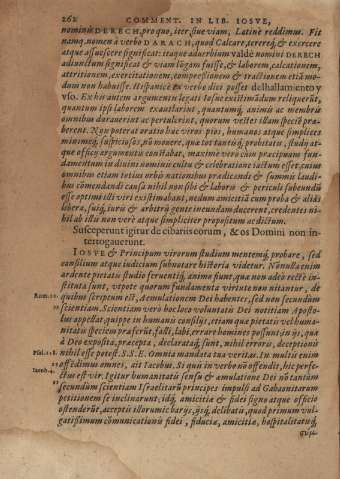 262 COMMENT. IN LIB. IOSVE,
nomine DERECH, pro quo, iter, siue viam, Latinè reddimus. Fit
namq́. nomen à verbo DARACH, quod Calcare, terereq́, & exercere
atque assuescere significat: itaque aduerbium valdè nomini DERECH
adiunctum significat & viam longam fuisse, & laborem, calcationem,
attritionem, exercitationem, & tractionem etiã mo-
dum non habuisse. Hispanicè ex verbo dici posset delhallamiento y
vso. Ex hirantem argumentum legati fessu
quantum ipsi laborem exantlarint, quantumq́, animis ac membris
omnibus durauerint ac pertulerint, quorum vestes illam speciẽ præ-
berent. Non poterat oratio hæc viros pios, humanos atque simplices
minimeq́, suspitiosos, nõ mouere, qua tot tantisq́, probitatis, studij at-
que officij argumentis constabat, maximè verò cùm præcipuum fun-
damentum in diuini nominis cultu & celebratione iactum esset, cuius
omnibus etiam totius orbis nationibus prædicandi & summis laudi-
bus cõmendandi causa nihil non sibi & laboris & periculi subeundũ
esse optimi isti viri existimabant, nedum amicitiã cum proba & aliàs
libera, suiq́, iuris & arbitrij gente ineundam ducerent, credentes ni-
hil ab istis non verè atque simpliciter propositum ac dictum.
Susceperunt igitur de cibariis eorum, & os Domini non in-
terrogauerunt.
IOSVE & Principum virorum studium mentemq́, probare, sed
consilium atque iudicium subnotare historia videtur. Nonnulla enim
ardente pietatis studio feruentiq́, animo fiunt, quæ non adeò rectè in-
stituta sunt, vtpote quorum fundamenta virtute non nitantur, de
Rom. 10. quibus scriptum est, Æmulationem Dei habentes, sed non secundùm
scientiam. Scientiam verò hoc loco voluntatis Dei notitiam Aposto-
lus appellat quippe in humanis consilijs, etiam quæ pietatis vel huma-
nitatis speciem præferũt, falli, labi, errare homines possunt: in ijs, quæ
à Deo exposita, præcepta, declarataq́, sunt, nihil erroris, deceptionis
Psal. 118. nihil esse potest. S.S.E. Omnia mandata tua veritas. In multis enim
Iacob. 3. offendimus omnes, ait Iacobus. Si quis in verbo nõ offendit, hic perfe-
ctus est vir. Igitur humanitatis sensu & æmulatione Dei nõ tantùm
secundùm scientiam Israelitarũ principes impulsi ad Gabaonitarum
petitionem se inclinarunt: idq́, amicitiæ & fidei signo atque officio
ostenderũt, acceptis istorum cibarijs, ijsq́, delibatis, quod primum vul-
gatissimum communicationis fidei, fiduciæ, amicitiæ, hospitalitatisq́,